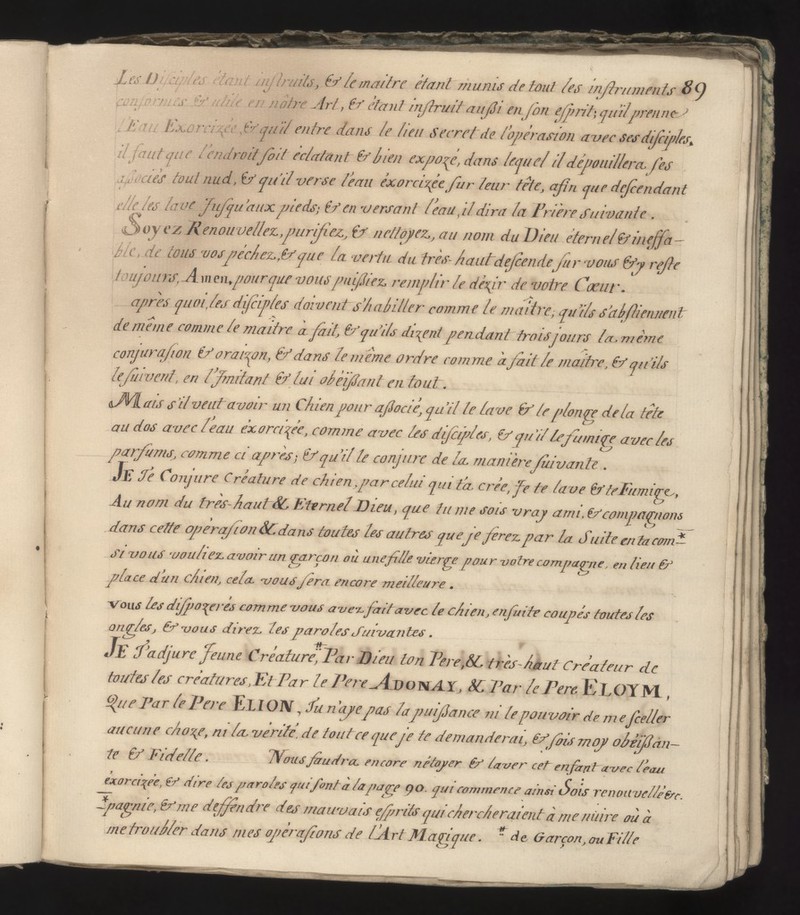 Les Disciples étant instruits, & le maitre étant munis de tout les instruments 89
conformes & utile en nôtre Art, & étant instruit aussi en son esprit; qu'il prenne
l'Eau Exorcizée, & qu'il entre dans le lieu secret de l'opérasion avec ses disciples,
il faut que l'endroit soit éclatant & bien expozé, dans lequel il dépouillera ses
associés tout nud, & qu'il verse l'eau éxorcizée sur leur tête, afin que descendant
elle les lave Jusqu'aux pieds; & en versant l'eau, il dira la Prière suivante.
Soyez Renouvellez, purifiez, & nettoyez, au nom du Dieu éternel & ineffa-
ble, de tous vos péchez, & que la vertu du très-haut descende sur vous & y reste
toujours, Amen, pour que vous puissiez remplir le dézir de votre Cœur.
après quoi, les disciples doivent s'habiller comme le maître, qu'ils s'abstiennent
de même comme le maitre à fait, & qu'ils dizent pendant trois jours la même
conjurasion & oraizon, & dans le même ordre comme à fait le maitre, & qu'ils
le suivent, en l'Jmitant & lui obéïssant en tout.
Mais s'il veut avoir un Chien pour associé, qu'il le lave & le plonge de la tête
au dos avec l'eau éxorcizée, comme avec les disciples, & qu'il le fumige avec les
parfums, comme ci après; & qu'il le conjure de la manière suivante.
JE Te Conjure Créature de chien, par celui qui t'a crée, Je te lave & te Fumige,
Au nom du très-haut & Eternel Dieu, que tu me sois vray ami, & compagnons
dans cette opérasion & dans toutes les autres que je ferez par la Suite en ta com-*
si vous vouliez avoir un garçon où une fille vierge pour votre compagne, en lieu &
place d'un chien, cela vous sera encore meilleure.
vous les dispozerés comme vous avez fait avec le chien, ensuite coupés toutes les
ongles, & vous direz les paroles suivantes.
JE T'adjure Jeune Créature,# Par Dieu ton Pere, & très-haut Créateur de
toutes les créatures, Et Par le Pere ADONAY, & Par le Pere ELOYM,
Que Par le Pere ELION, Tu n'aye pas la puissance ni le pouvoir de me sceller
aucune choze, ni la vérité, de tout ce que je te demanderai, & sois moy obéïssan-
te & Fidelle. Nous faudra encore nétoyer & laver cet enfant avec l'eau
éxorcizée, & dire les paroles qui sont à la page 90. qui commence ainsi Sois renouvellé &c.
*pagnie, & me deffendre des mauvais esprits qui chercheraient à me nuire où à
me troubler dans mes opérasions de l'Art Magique. # de Garçon, ou Fille